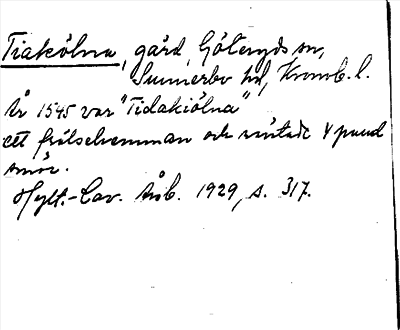 Tiakölna, gård, Göteryds sn,
Sunnerbo hd, Kronob. l.
År 1545 var "Tidakiölna"
ett frälsehemman och räntade 4 pund
smör.
Hylt.-Cav. Årb. 1929, s. 317.